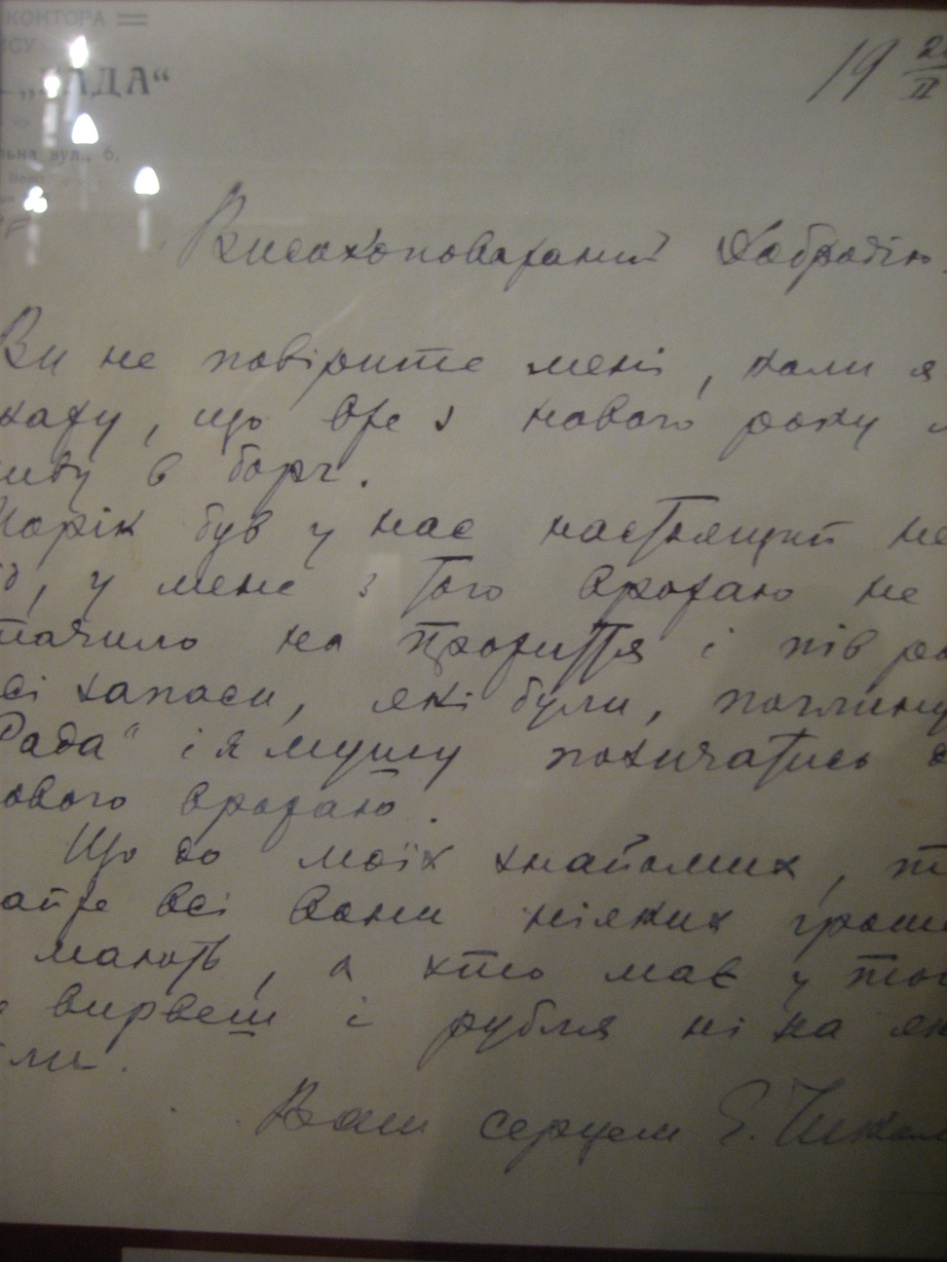 КОНТОРА
„РАДА“
вул., 6.
19
II
Високоповажаний Добродію.
Ви не повірите мені, коли я
кажу, що вже з нового року
живу в борг.
Торік був у нас настоящий не
у мене з того врожаю не
стачило на прожиття і пів ро
всі запаси, які були, поглину
Рада“ і я мушу позичатись д
ового врожаю.
Що до моїх знайомих, т
айже всі вони ніяких гроше
мають, а хто має у тог
вирвеш і рубля ні на як
Ваш серцем Є. Чикал